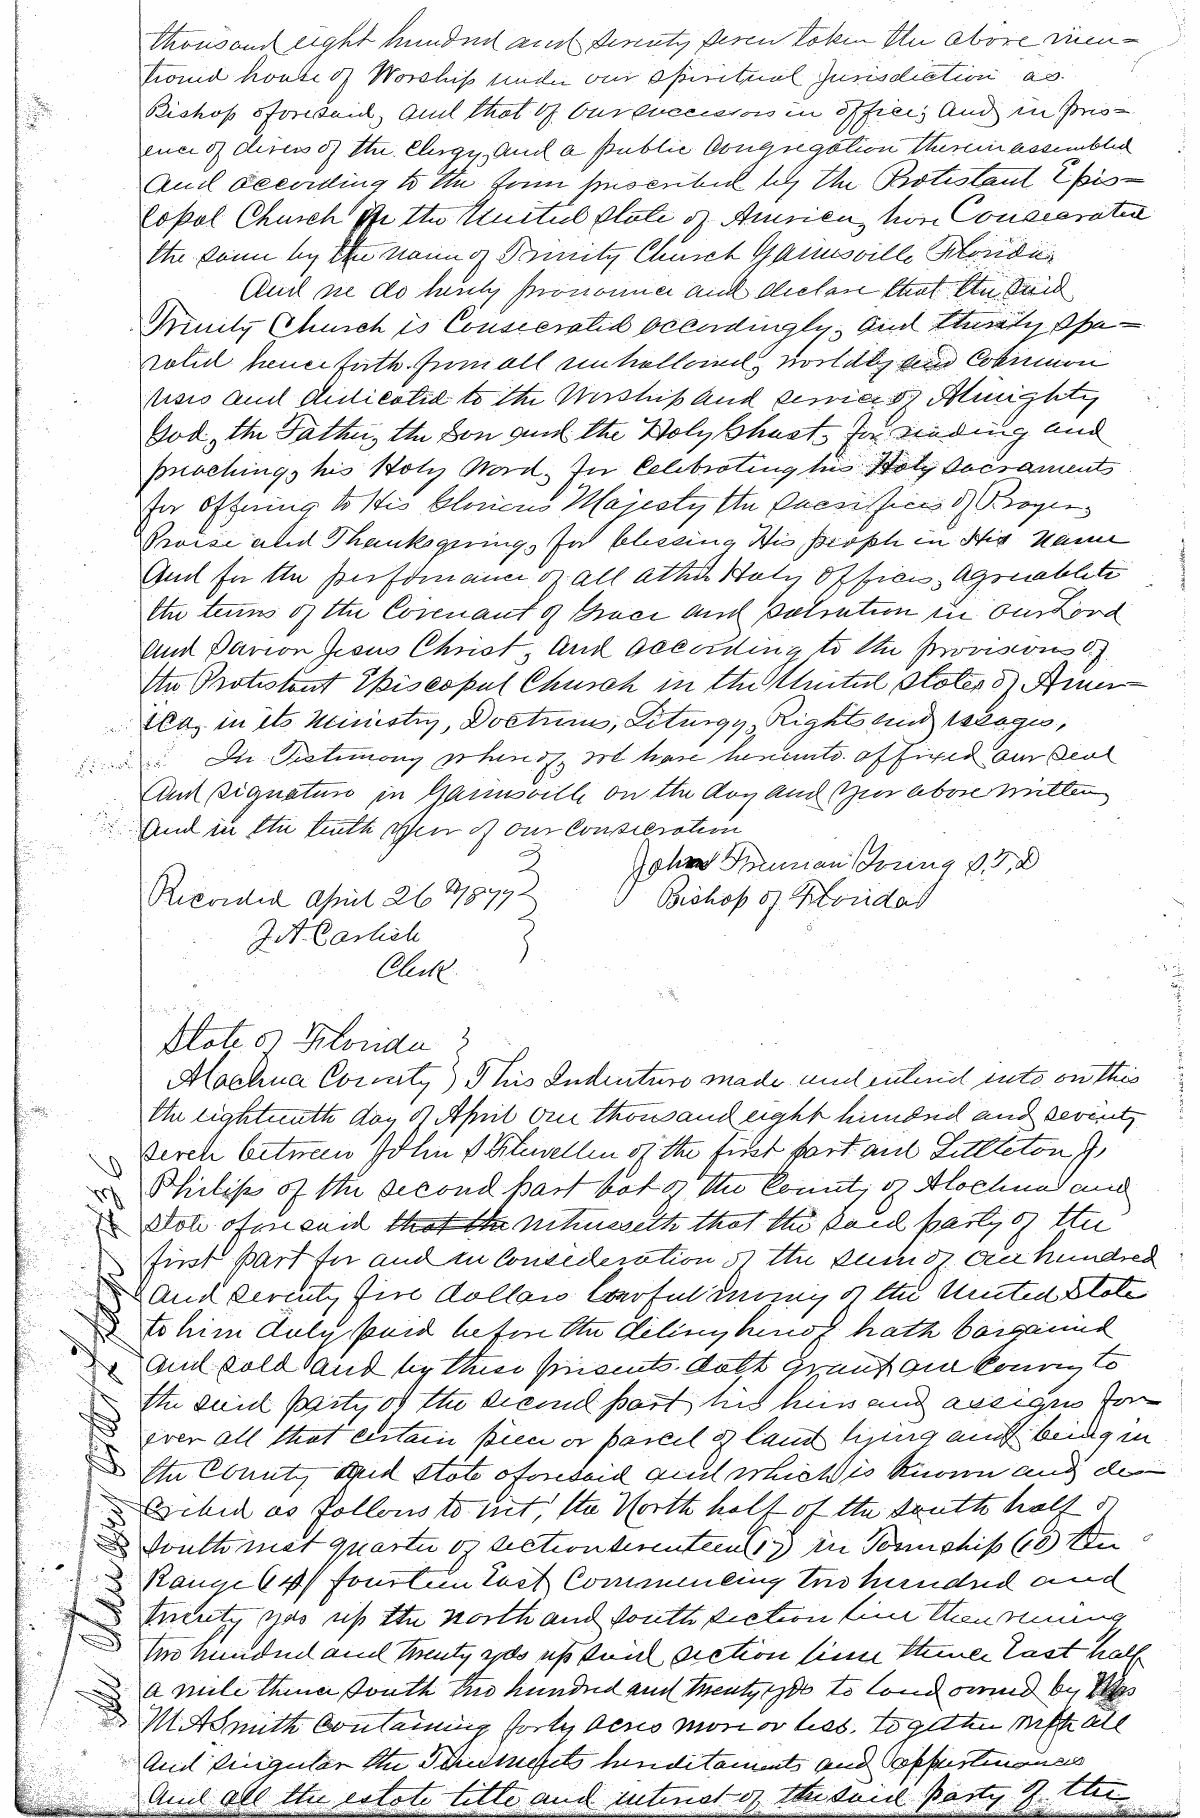 thousand eight hundred and seventy seven taken the above men=
tioned house of Worship under our spiritual Jurisdiction as
Bishop aforesaid, and that of our successors in office; and in pres=
ence of divers of the Clergy, and a public Congregation therein assembled
And according to the form prescribed by the Protestant Epis=
copal Church in the United State of America, have Consecrated
the same by the name of Trinity Church Gainesville Florida,
And we do hereby pronounce and declare that the said
Trinity Church is Consecrated accordingly, and thereby sepa=
rated henceforth from all unhallowed, worldly and common
uses and dedicated to the Worship and service of Almighty
God, the Father, the Son and the Holy Ghost, for reading and
preaching, his Holy Word, for Celebrating his Holy Sacraments
for offering to His Glorious Majesty the sacrifices of Prayer,
Praise and Thanksgiving, for blessing His people in His Name
And for the performance of all other Holy Offices, agreable to
the terms of the Covenant of Grace and Salvation in our Lord
and Savior Jesus Christ, and according to the provisions of
the Protestant Episcopal Church in the United States of Amer=
ica, in its Ministry, Doctrines, Liturgy, Rights and usages,
In Testimony whereof, we have hereunto affixed our seal
And signature in Gainesville on the day and year above written
And in the tenth year of our Consecration
John Freeman Young S.T.D
Bishop of Florida
Recorded April 26th 1877
J. A. Carlisle
Clerk
State of Florida
Alachua County } This Indenture made and entered into on this
the eighteenth day of April one thousand eight hundred and seventy
seven between John S Flewellen of the first part and Littleton J,
Philips of the second part bot of the County of Alachua and
State aforesaid that the witnesseth that the said party of the
first part for and in consideration of the sum of one hundred
And seventy five dollars lawful money of the United State
to him duly paid before the delivry hereof hath bargained
and sold and by these presents doth grant and convey to
the said party of the second part his heirs and assigns for=
ever all that certain piece or parcel of land lying and being in
the County and state aforesaid and which is known and des=
cribed as follows to wit, the North half of the south half of
South west quarter of section seventeen (17) in Township (10) ten
Range (14) fourteen East Commencing two hundred and
twenty yds up the north and south section line then runing
two hundred and twenty yds up said section line thence East half
a mile thence south two hundred and twenty yds to land owned by Mrs
M. A Smith containing forty acres more or less. together with all
And singular the Tenements hereditaments and appurtenances
And all the estate title and interest of the said party of the